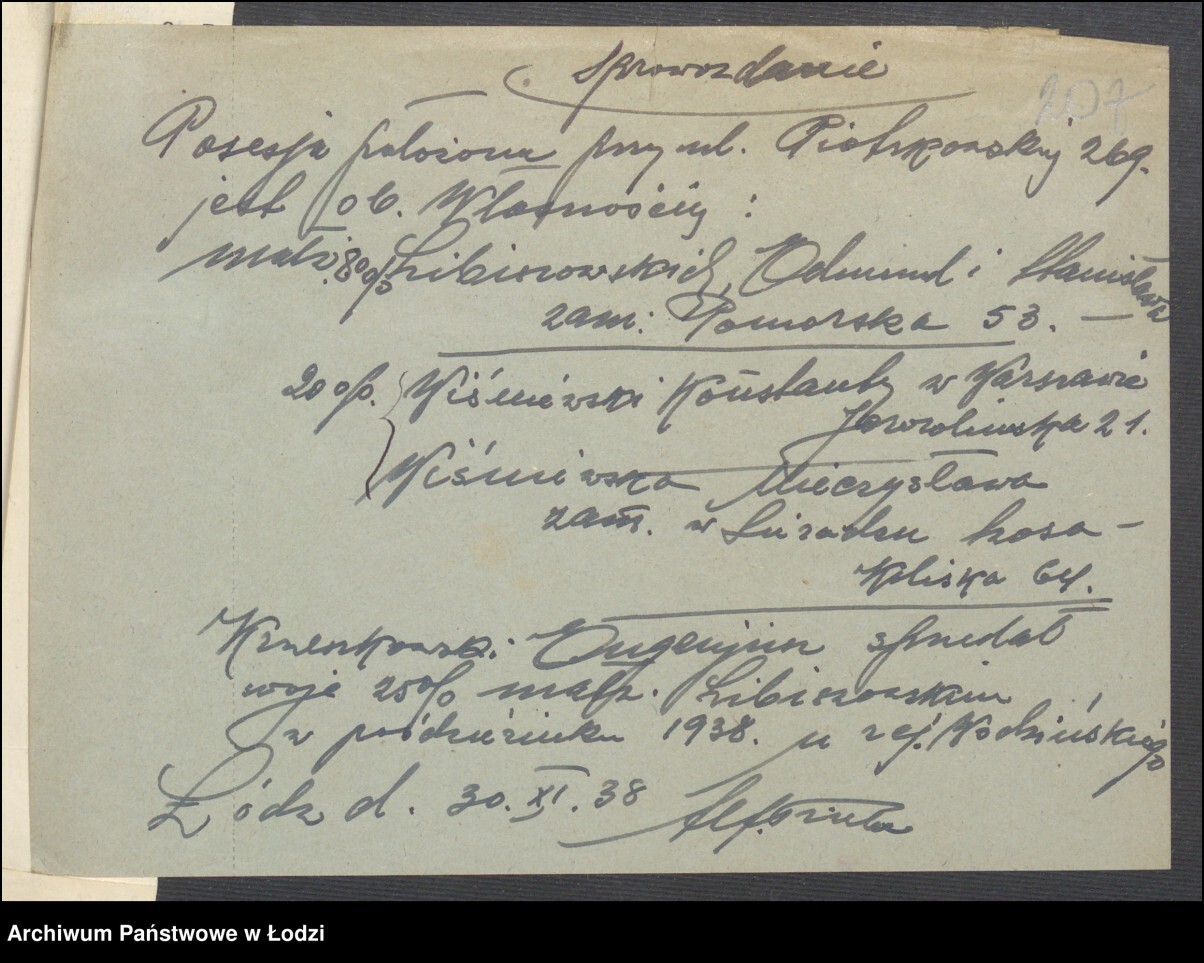 Sprowozdanie
207
Posesja położona przy ul. Piotrkowskiej 269.
jest ob. Własnością :
małż. 80% Libiszowskich, Edmund i Stanisława
zam: Pomorska 53. —
20%. Wiśniewski Konstanty w Warszawie
21.
Wiśniewska Mieczysława
zam. w Sieradzu kosa-
Kliska 64.
Eugenjusz sprzedał
swoje 25% małż. Libiszowskim
w paździeriniku 1938. u rej. Wodzińskiego
Łódz d. 30.XI.38
Archiwum Państwowe w Łodzi